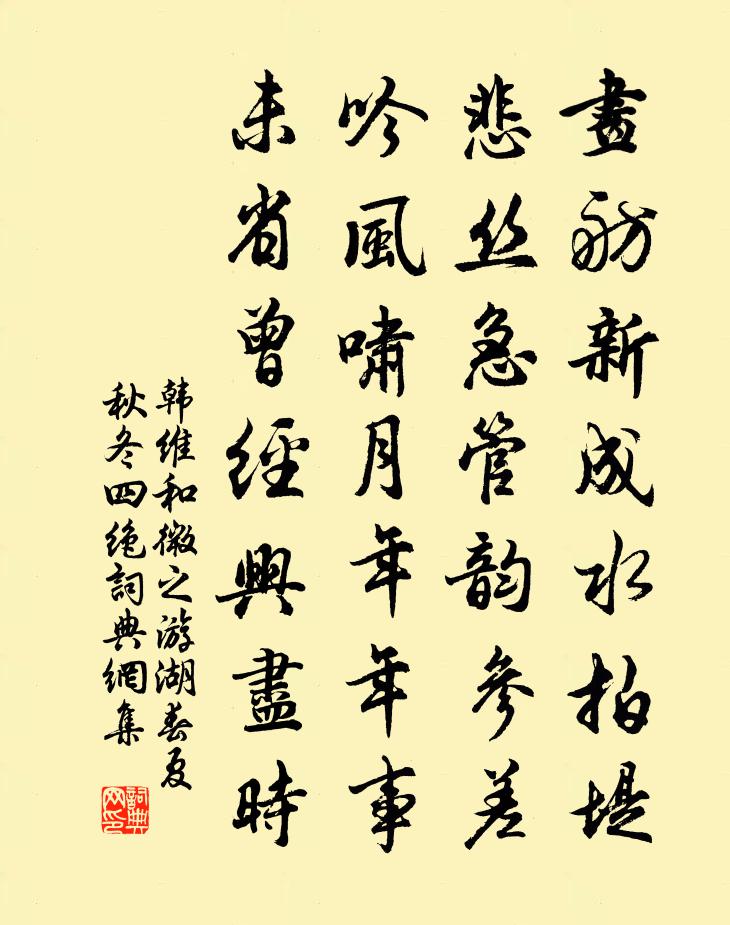 畫舫新成水拍堤
悲丝急管韵參差
吟風嘯月年年事
未省曾經興盡時
韩維和微之游湖春夏
秋冬四绝詞典網集
詞典网印